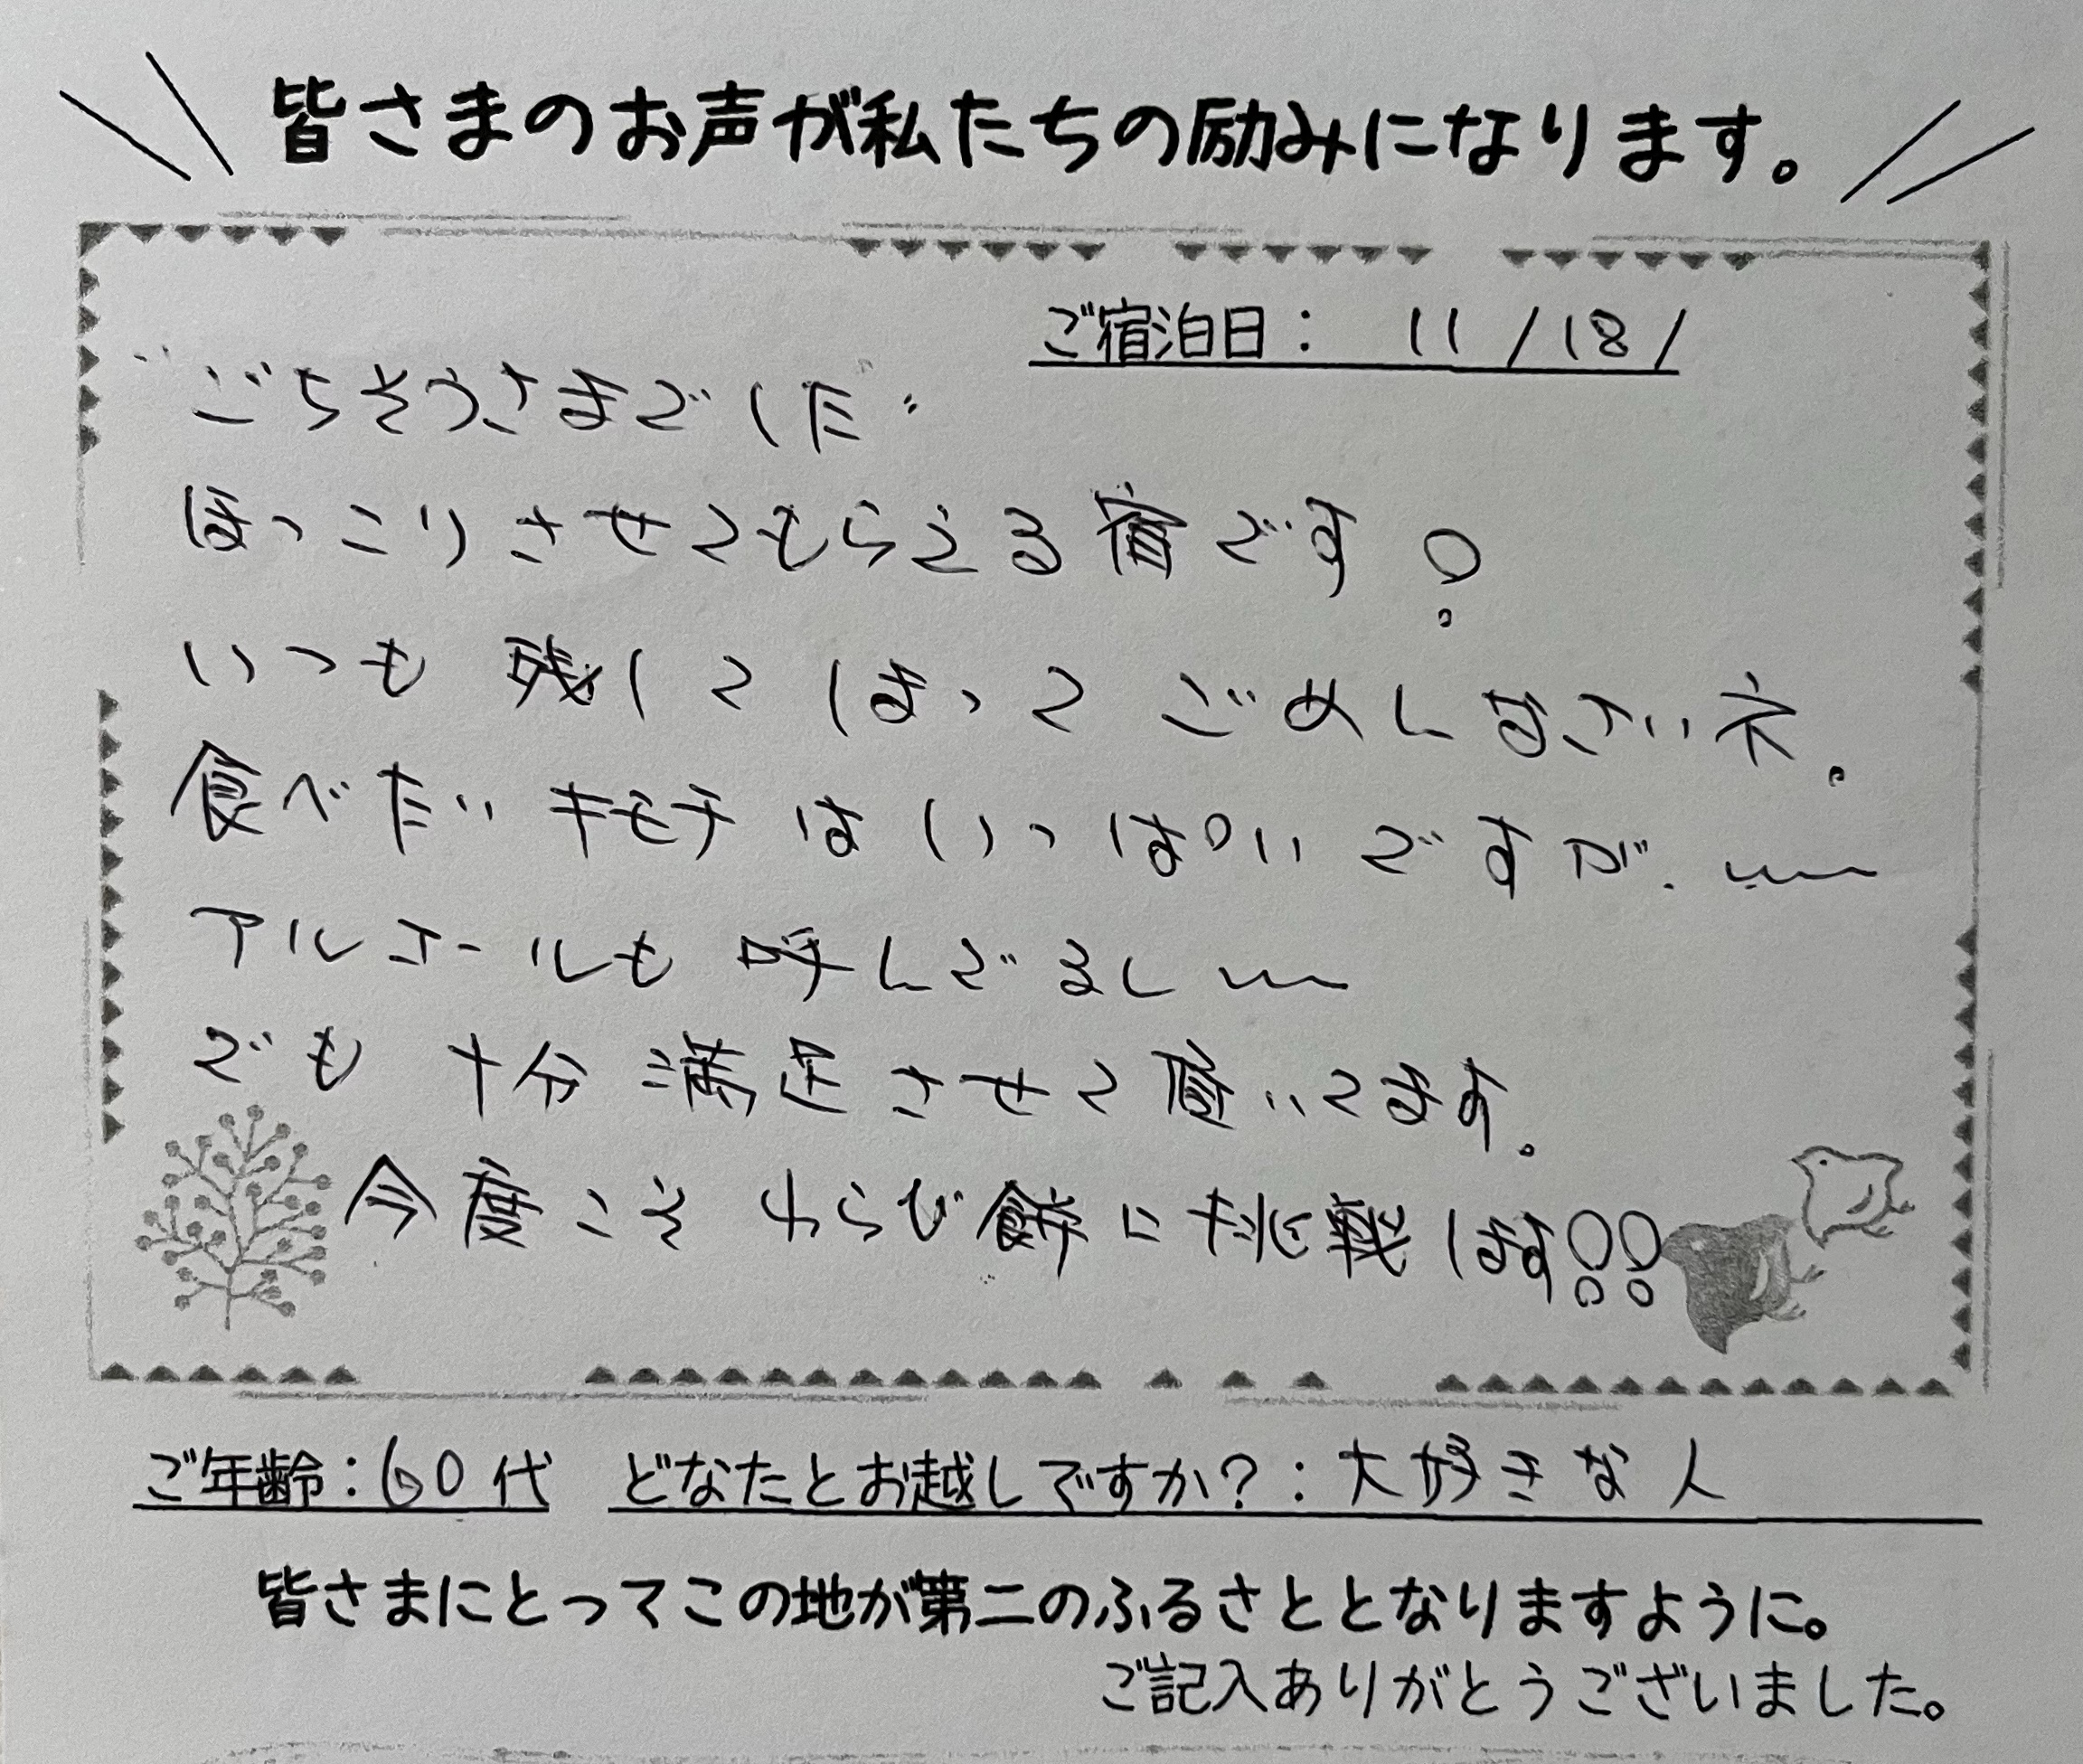 皆さまのお声が私たちの励みになります。
ご宿泊日： 11/18/
"ごちそうさまでした"
ほっこりさせてもらえる宿です!
いつも残してしまってごめんなさいネ.
食べたいキモチはいっぱいですが.〰
アルコールも呼んでるし〰
でも十分満足させて頂いてます.
今度こそわらび餅に挑戦します!!
ご年齢：60代 どなたとお越しですか？：大好きな人
皆さまにとってこの地が第二のふるさととなりますように。
ご記入ありがとうございました。